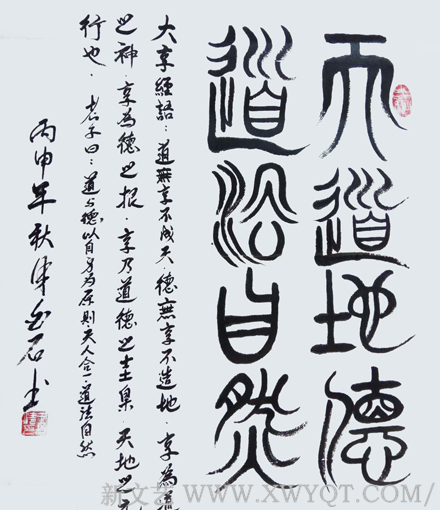 天道地德
道法自然
大享經語：道無享不成天．德無享不造地．享為道
之神．享為德之根．享乃道德之圭臬．天地之
行也．老子曰：道与德以自身为原则．天人合一．道法自然
丙申年秋 石书
新文艺 WWW.XWYQT.COM